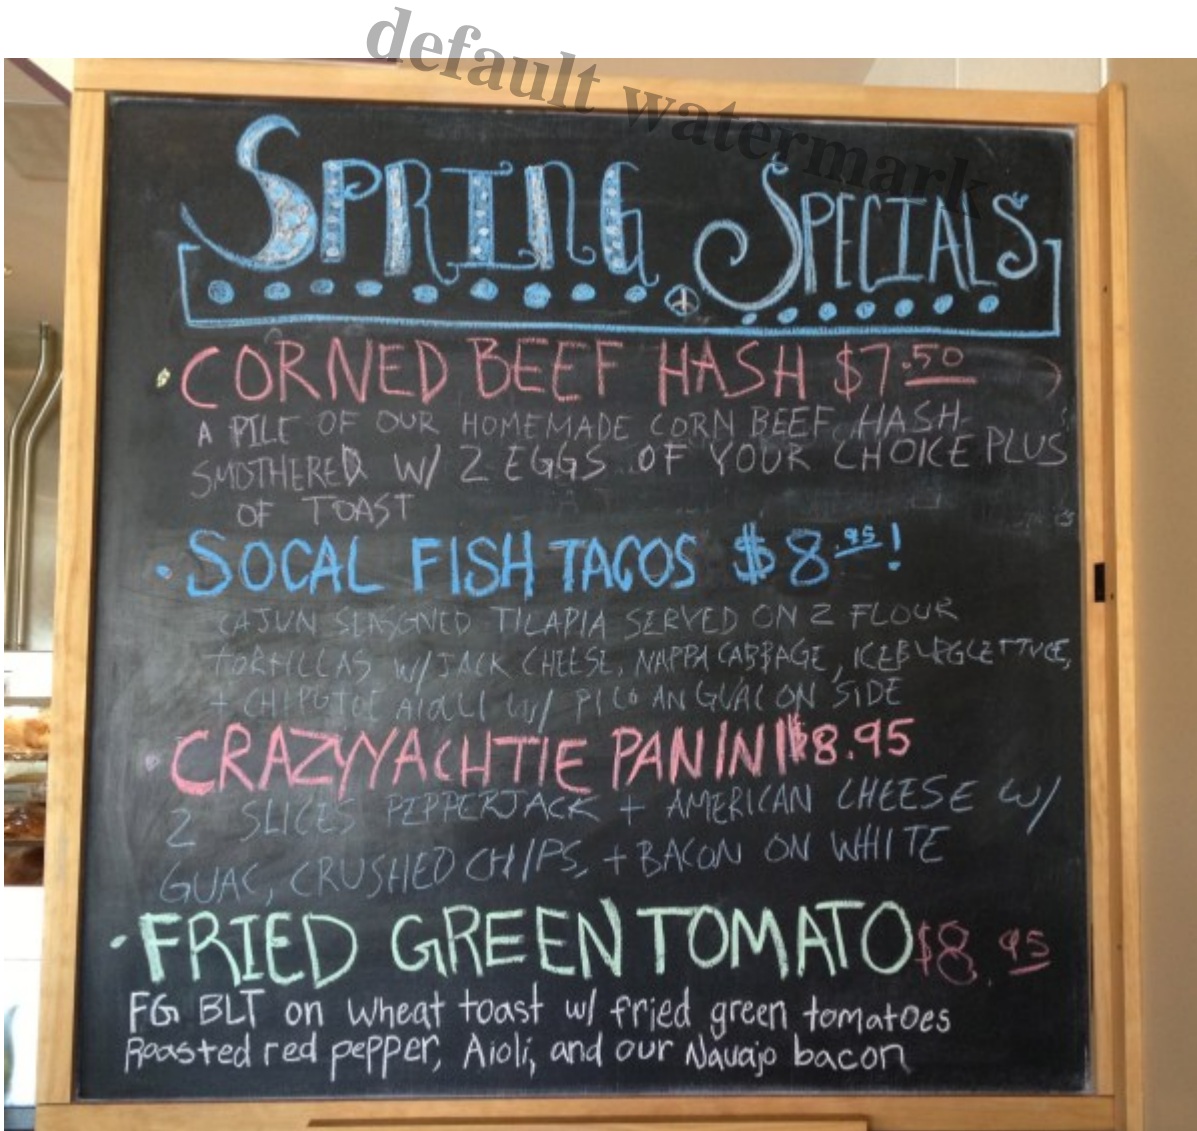 default watermark
SPRING SPECIALS
CORNED BEEF HASH $7.50
A PILE OF OUR HOMEMADE CORN BEEF HASH
SMOTHERED W/ 2 EGGS OF YOUR CHOICE PLUS
OF TOAST
SOCAL FISH TACOS $8.95!
CAJUN SEASONED TILAPIA SERVED ON 2 FLOUR
TORTILLAS W/JACK CHEESE, NAPPA CABBAGE, ICEBURGLETTUCE,
+ CHIPOTLE AIOLI W/ PICO AN GUAC ON SIDE
CRAZYYACHTIE PANINI $8.95
2 SLICES PEPPERJACK + AMERICAN CHEESE W/
GUAC, CRUSHED CHIPS, + BACON ON WHITE
FRIED GREEN TOMATO $8.95
FG BLT on wheat toast w/ fried green tomatoes
Roasted red pepper, Aioli, and our Navajo bacon